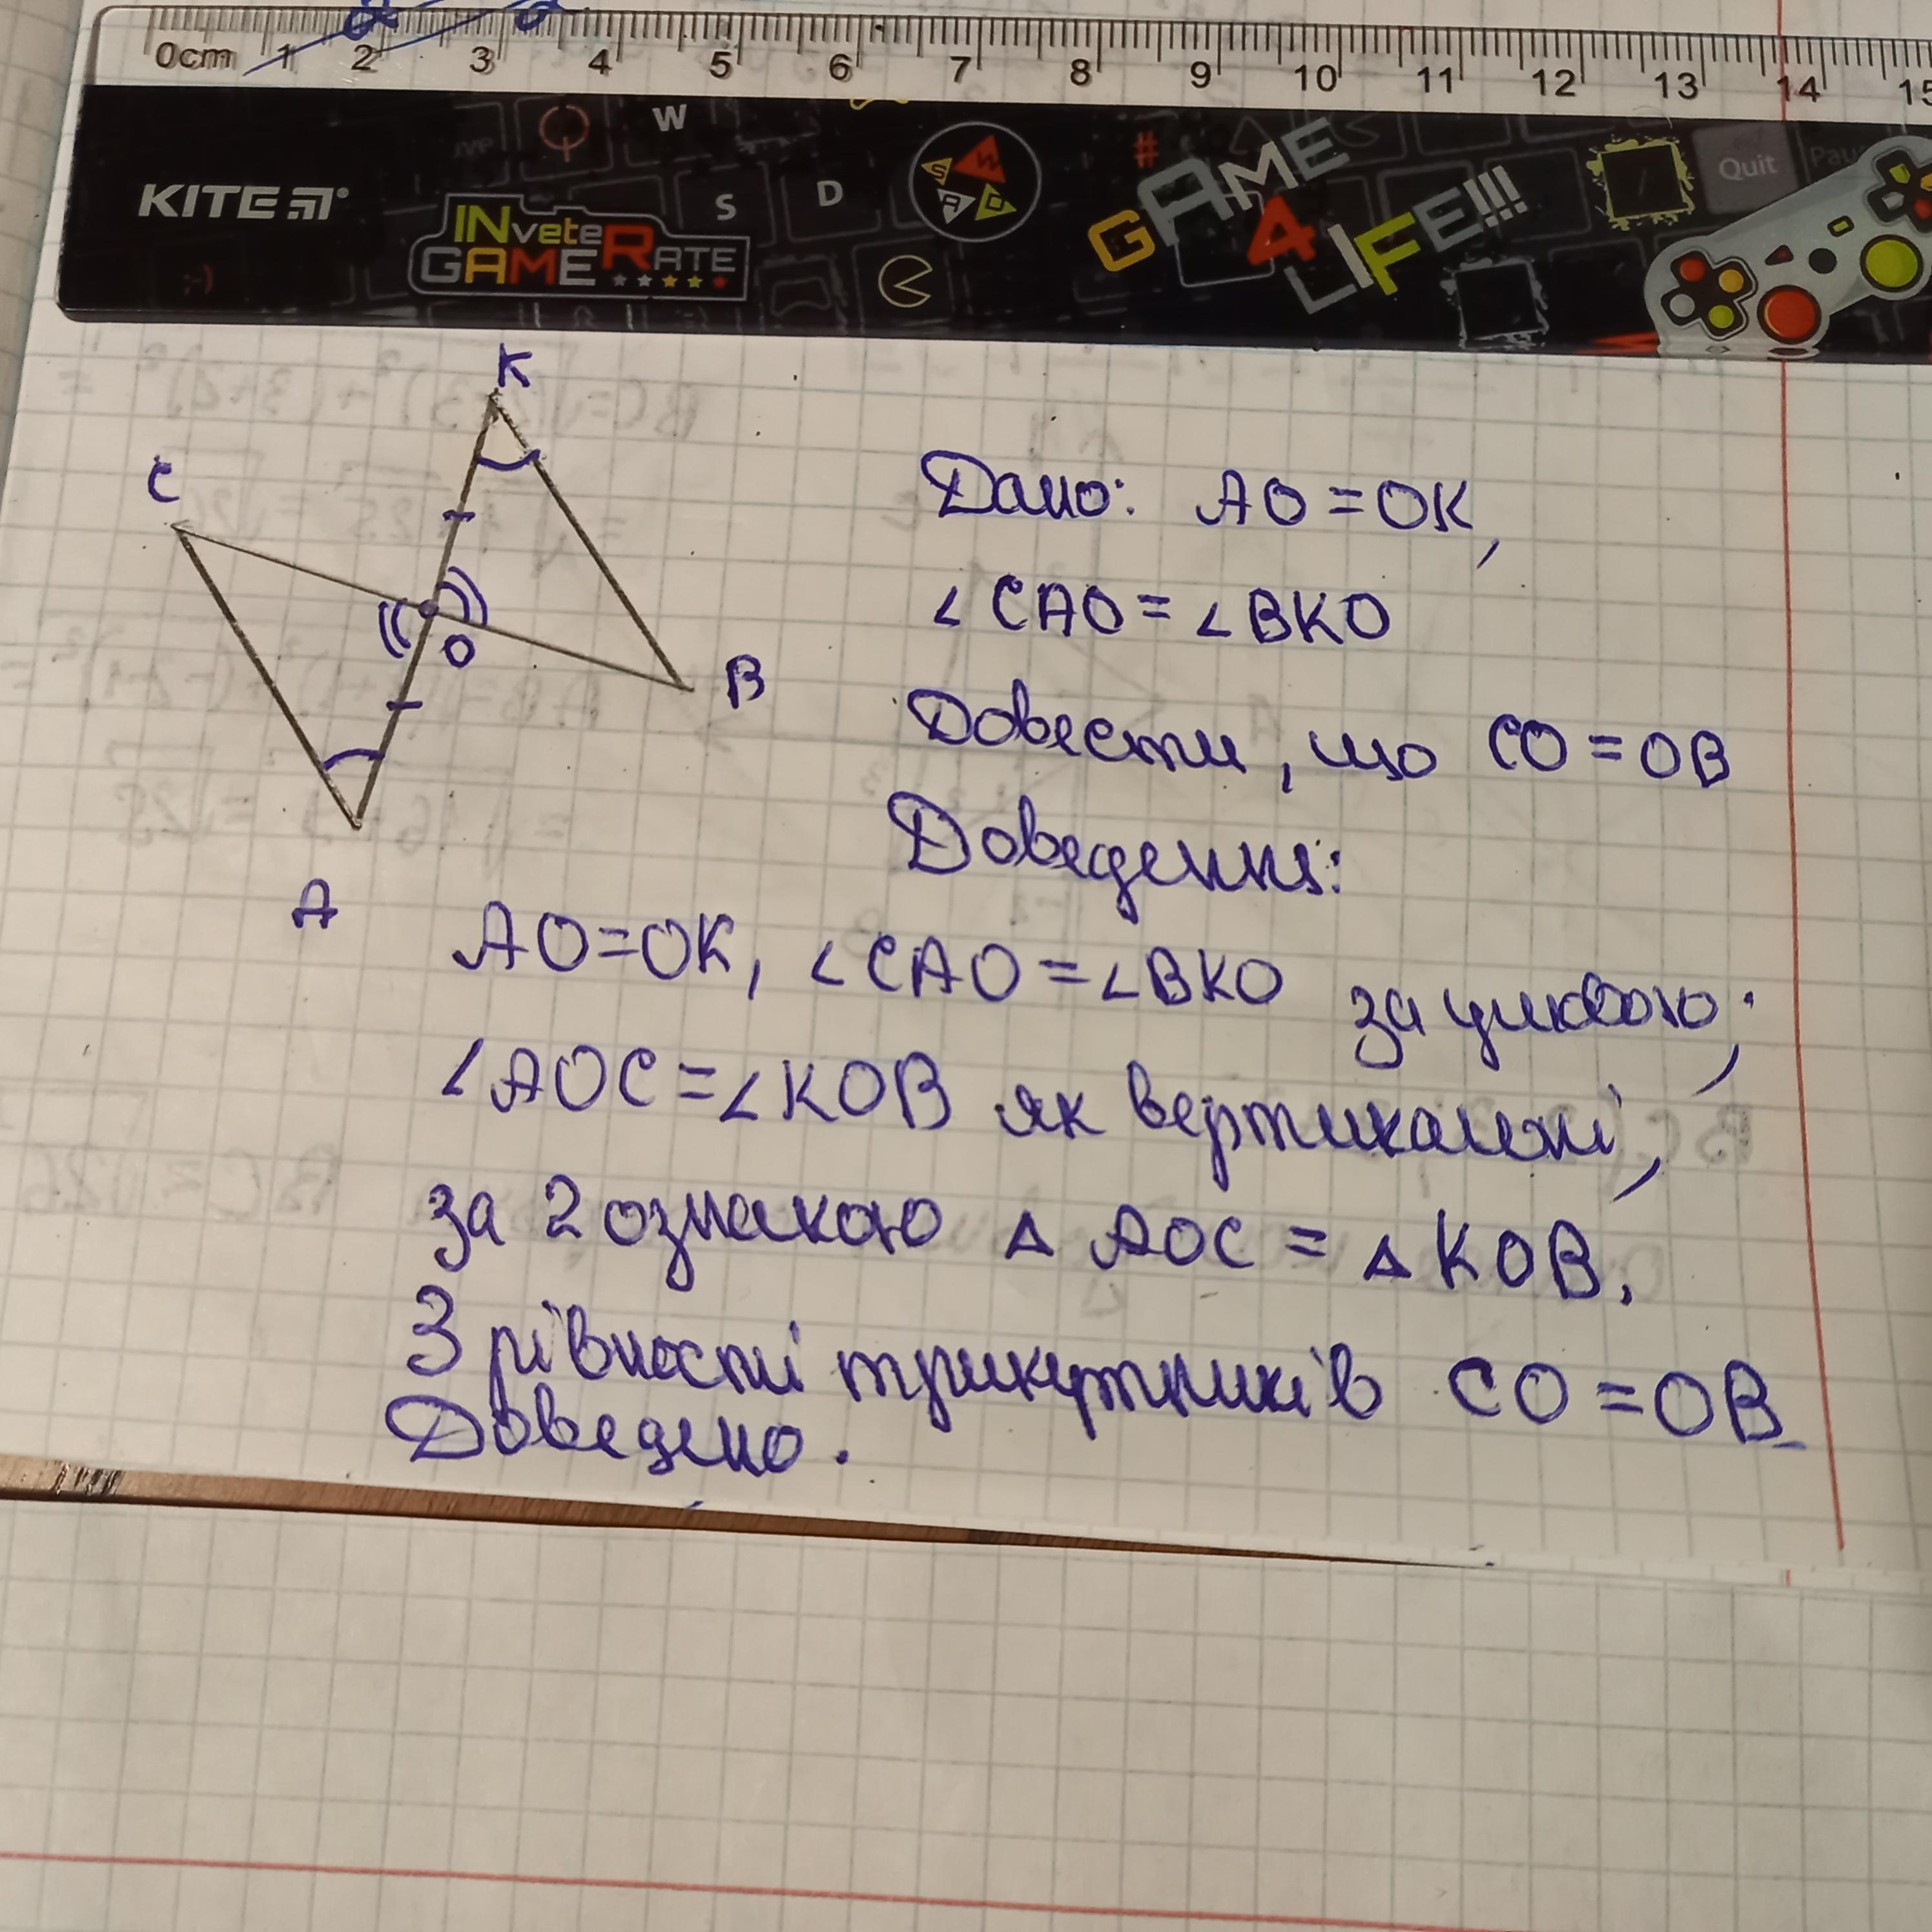 0cm 1 2 3 4 5 6 7 8 9 10 11 12 13 14 15
W
KITE
S D
S W A D
#
GAME
4
LIFE!!!
Quit
INveteRATE
GAME
;-)
K
C
O
B
A
Дано: AO = OK,
∠CAO = ∠BKO
Довести, що CO = OB
Доведення:
AO=OK, ∠CAO = ∠BKO за умовою;
∠AOC = ∠KOB як вертикальні,
за 2 ознакою △ AOC = △ KOB.
З рівності трикутників CO = OB
Доведено.